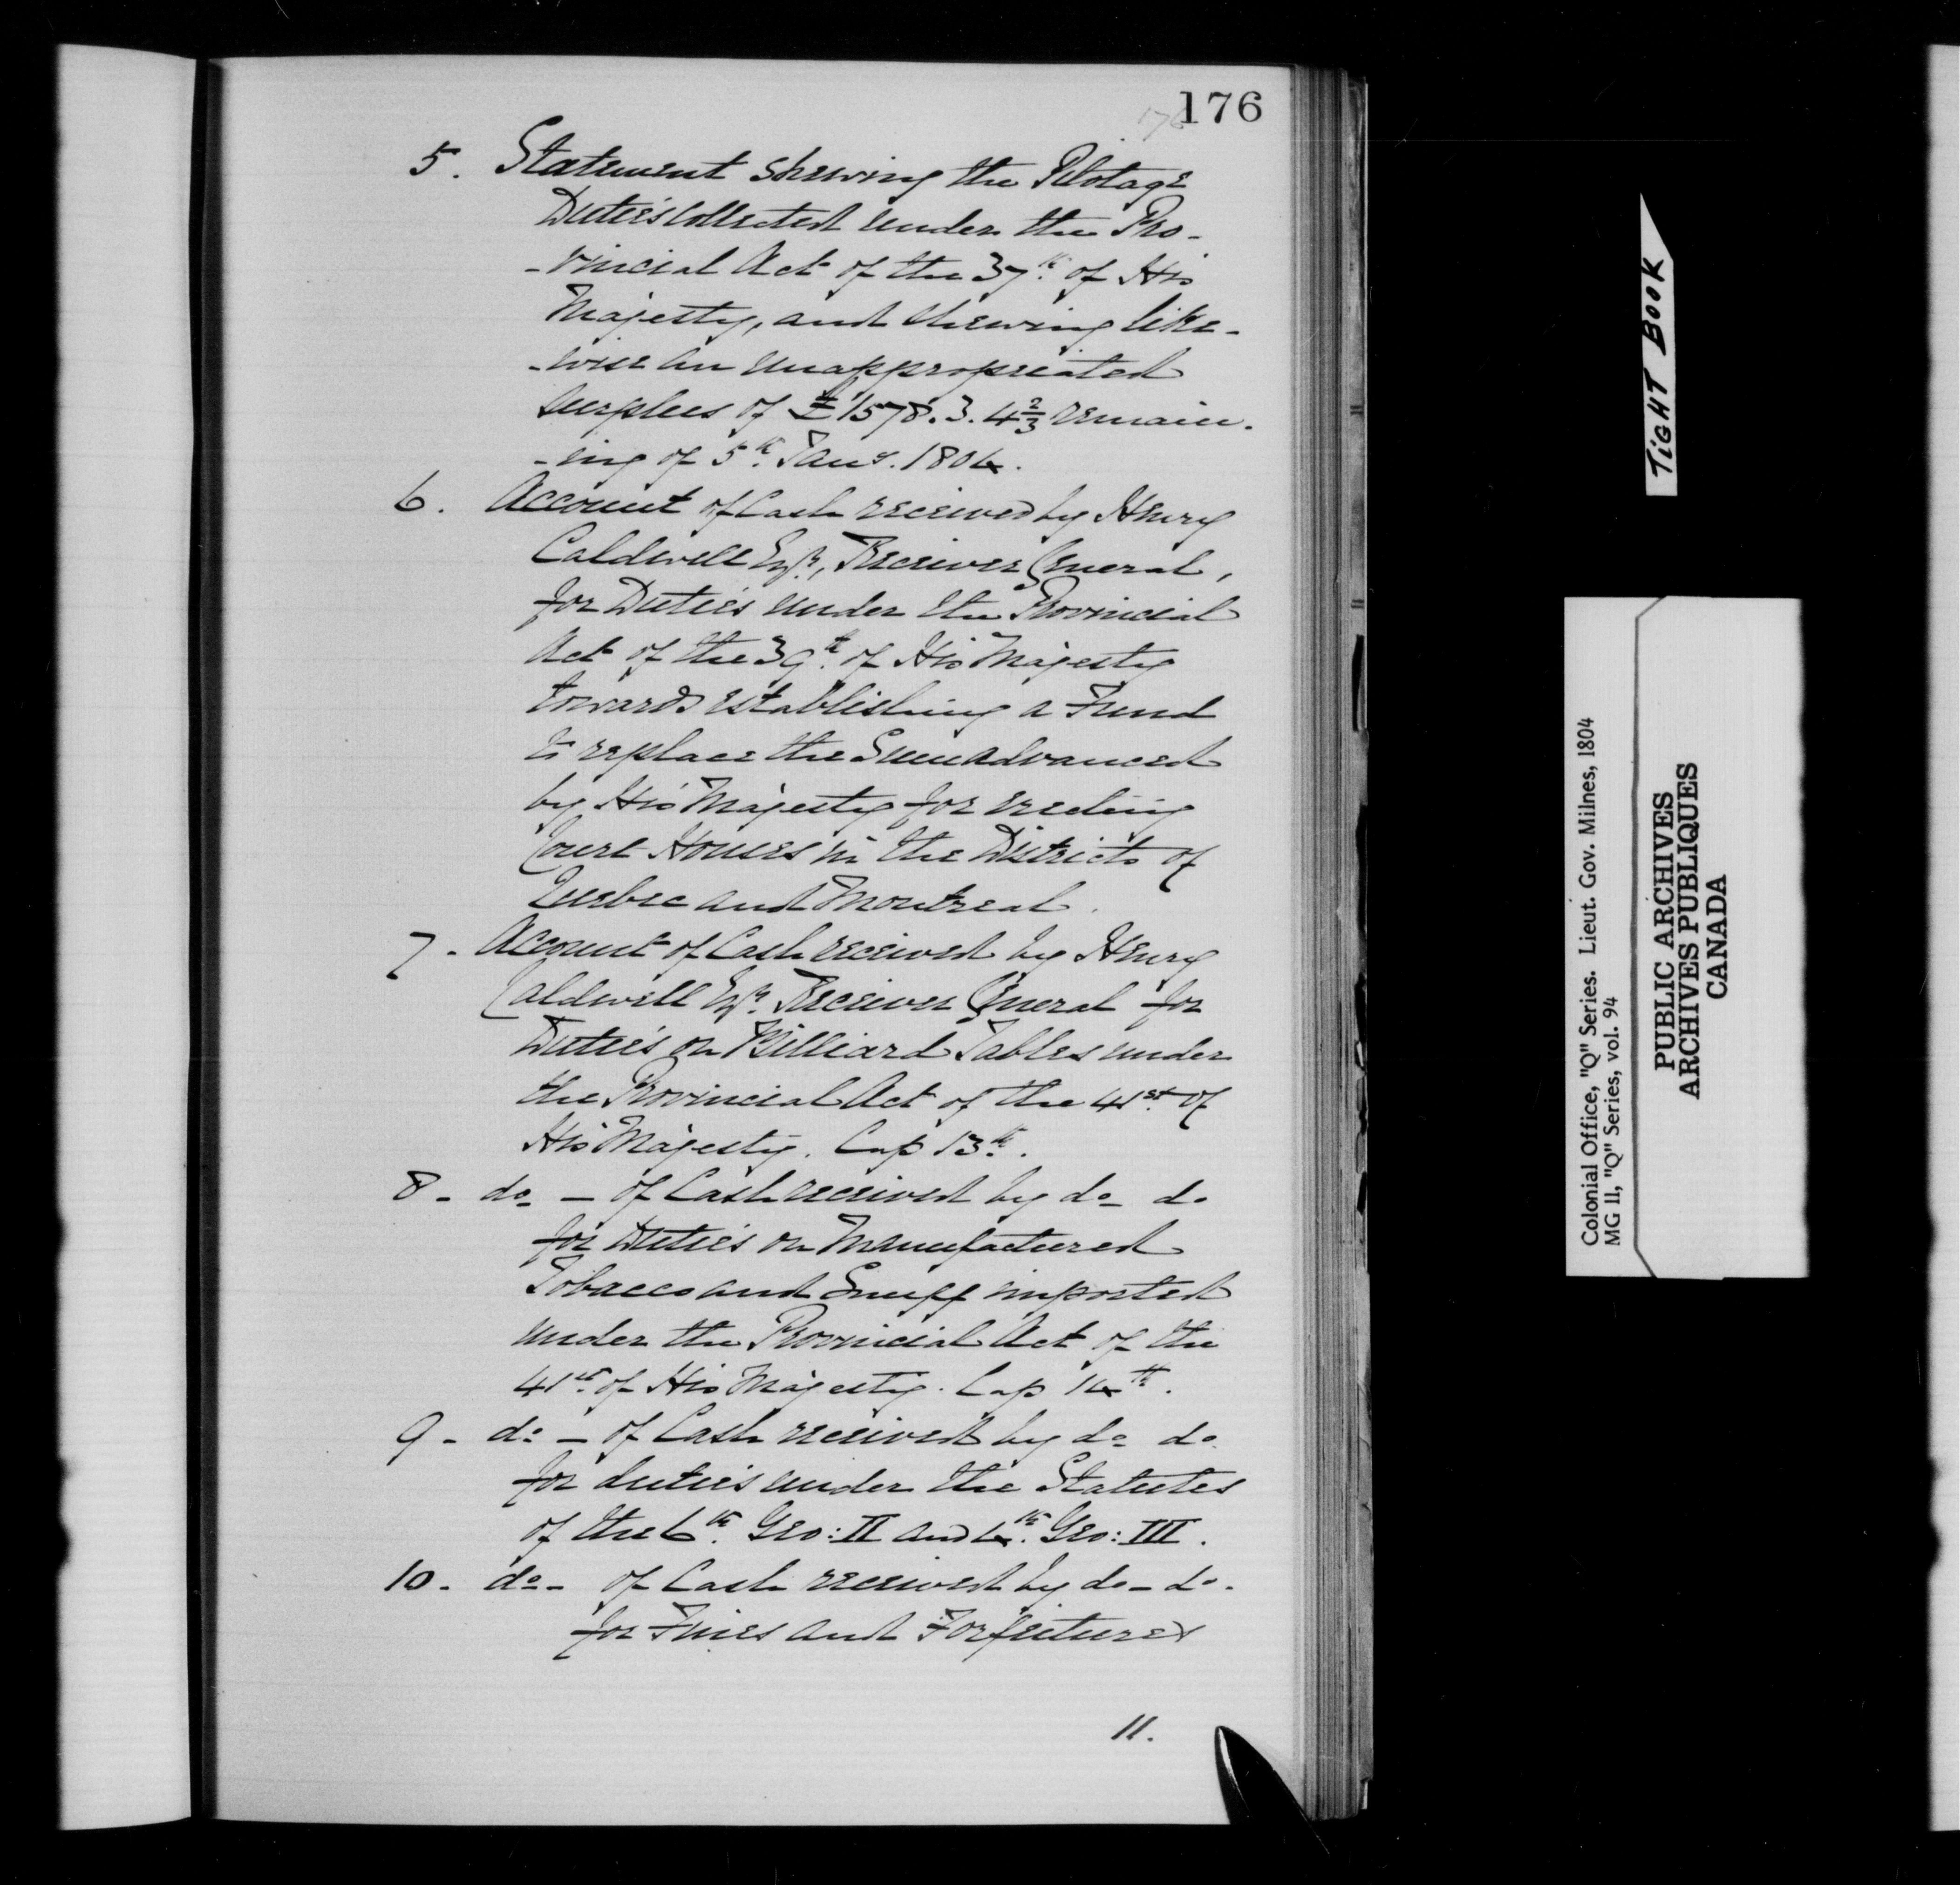 176
176
5. Statement shewing the Pilotage
Duties collected under the Pro-
-vincial Act of the 37th of His
Majesty, and shewing like-
-wise an unappropriated
surplus of £1578.3.4 2/3 remain-
-ing of 5th Jany. 1804.
6. Account of Cash received by Henry
Caldwell Esqr., Receiver General,
for Duties under the Provincial
Act of the 39th of His Majesty
towards establishing a Fund
to replace the Sum advanced
by His Majesty for erecting
Court Houses in the Districts of
Quebec and Montreal.
7 - Account of Cash received by Henry
Caldwell Esqr. Receiver General for
Duties on Billiard Tables under
the Provincial Act of the 41st of
His Majesty. Cap 13th.
8 - do - of Cash received by do do
for Duties on Manufactured
Tobacco and Snuff imported
under the Provincial Act of the
41st of His Majesty. Cap 14th.
9 - do - of Cash received by do do
for duties under the Statutes
of the 6th Geo: II and 4th Geo: III.
10 - do - of Cash received by do - do.
for Fines and Forfeitures
11.
TIGHT BOOK
Colonial Office, "Q" Series. Lieut. Gov. Milnes, 1804
MG 11, "Q" Series, vol. 94
PUBLIC ARCHIVES
ARCHIVES PUBLIQUES
CANADA